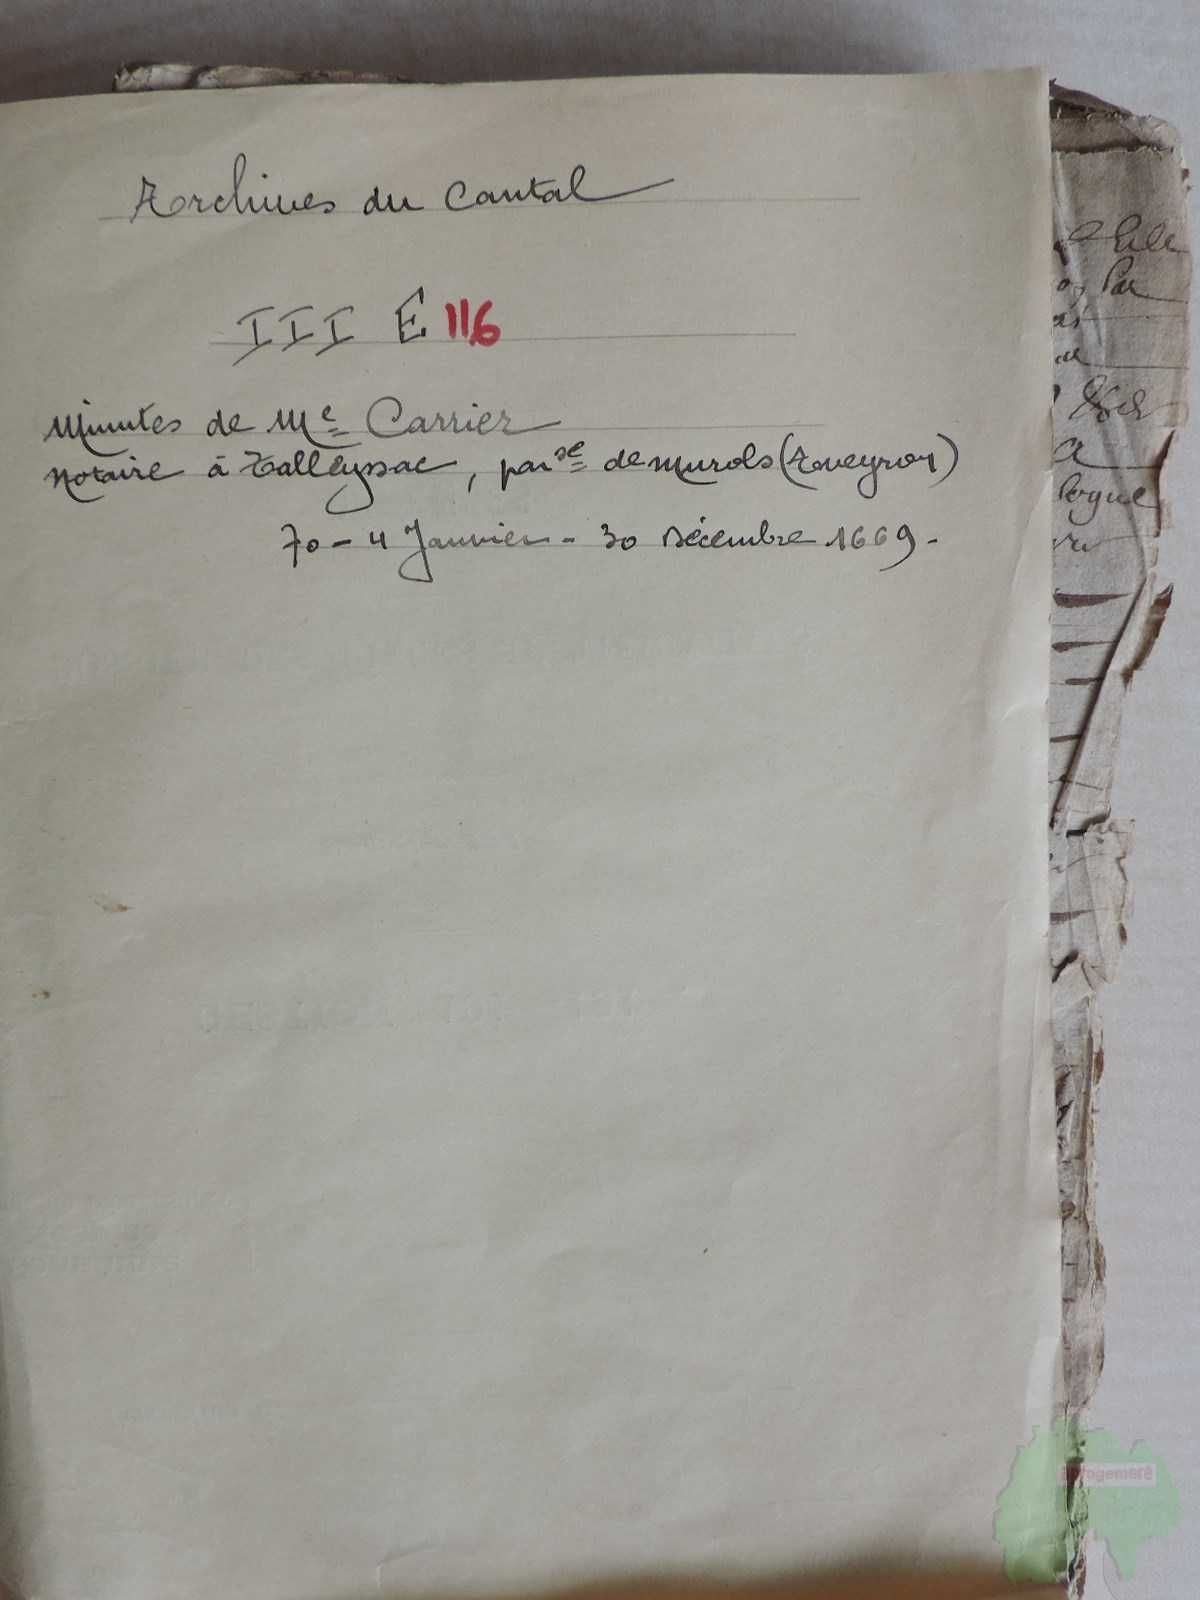 Archives du Cantal
III E 116
Minutes de Me Carrier
Notaire à Talleyssac, parse de Murols (Aveyron)
70 - 4 Janvier - 30 Décembre 1669.
Par
pogue